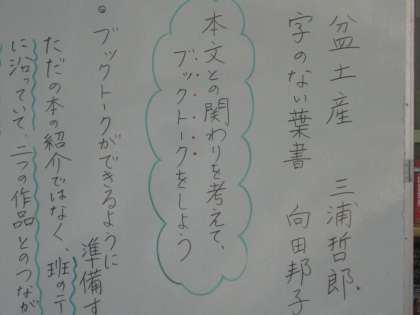 盆土産 三浦哲郎
字のない葉書 向田邦子
本文との関わりを考えて、
ブックトークをしよう
・ブックトークができるように
準備す
ただの本の紹介ではなく、班のテ
に沿っていて、二つの作品とのつなが